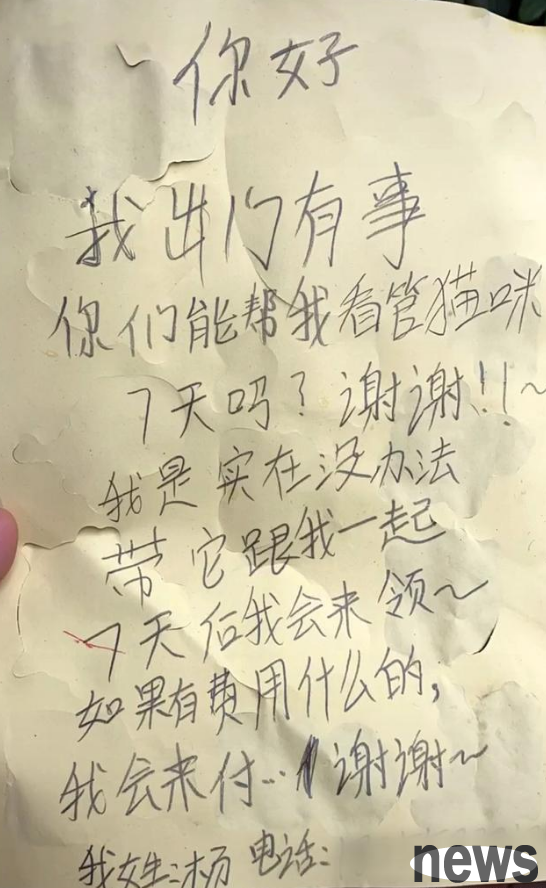 你好
我出门有事
你们能帮我看管猫咪
7天吗？谢谢！！~
我是实在没办法
带它跟我一起
7天后我会来领~
如果有费用什么的，
我会来付… 谢谢~
我女生：杨 电话：
news